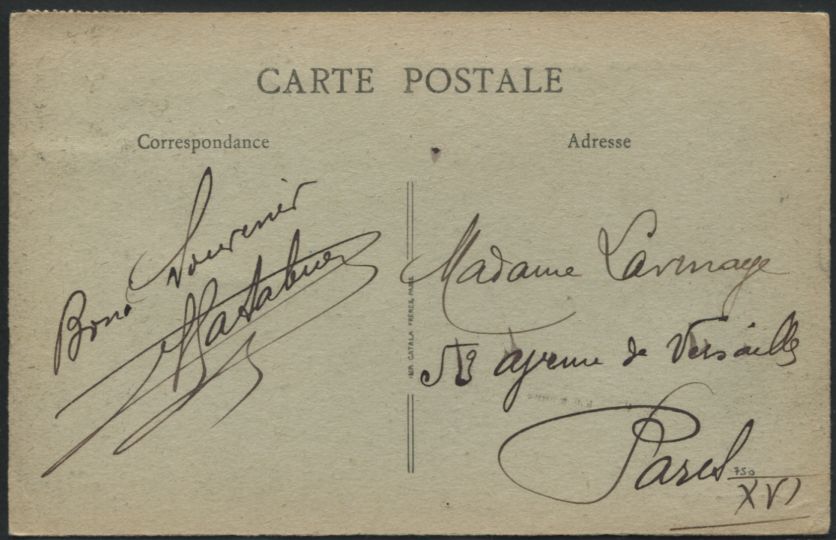 CARTE POSTALE
Correspondance
Adresse
Bons Souvenir
IMP. CATALA FRÈRES, PARIS
Madame Lavenage
avenue de Versailles
Paris
750
XVI